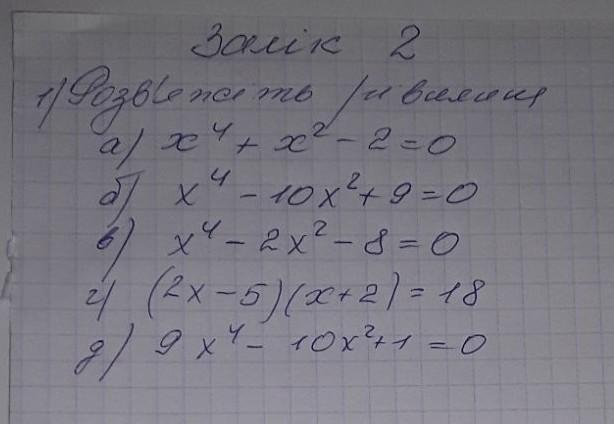 Залік 2
1) Розв'яжіть рівняння
а) x⁴ + x² - 2 = 0
б) x⁴ - 10x² + 9 = 0
в) x⁴ - 2x² - 8 = 0
г) (2x - 5)(x + 2) = 18
д) 9x⁴ - 10x² + 1 = 0